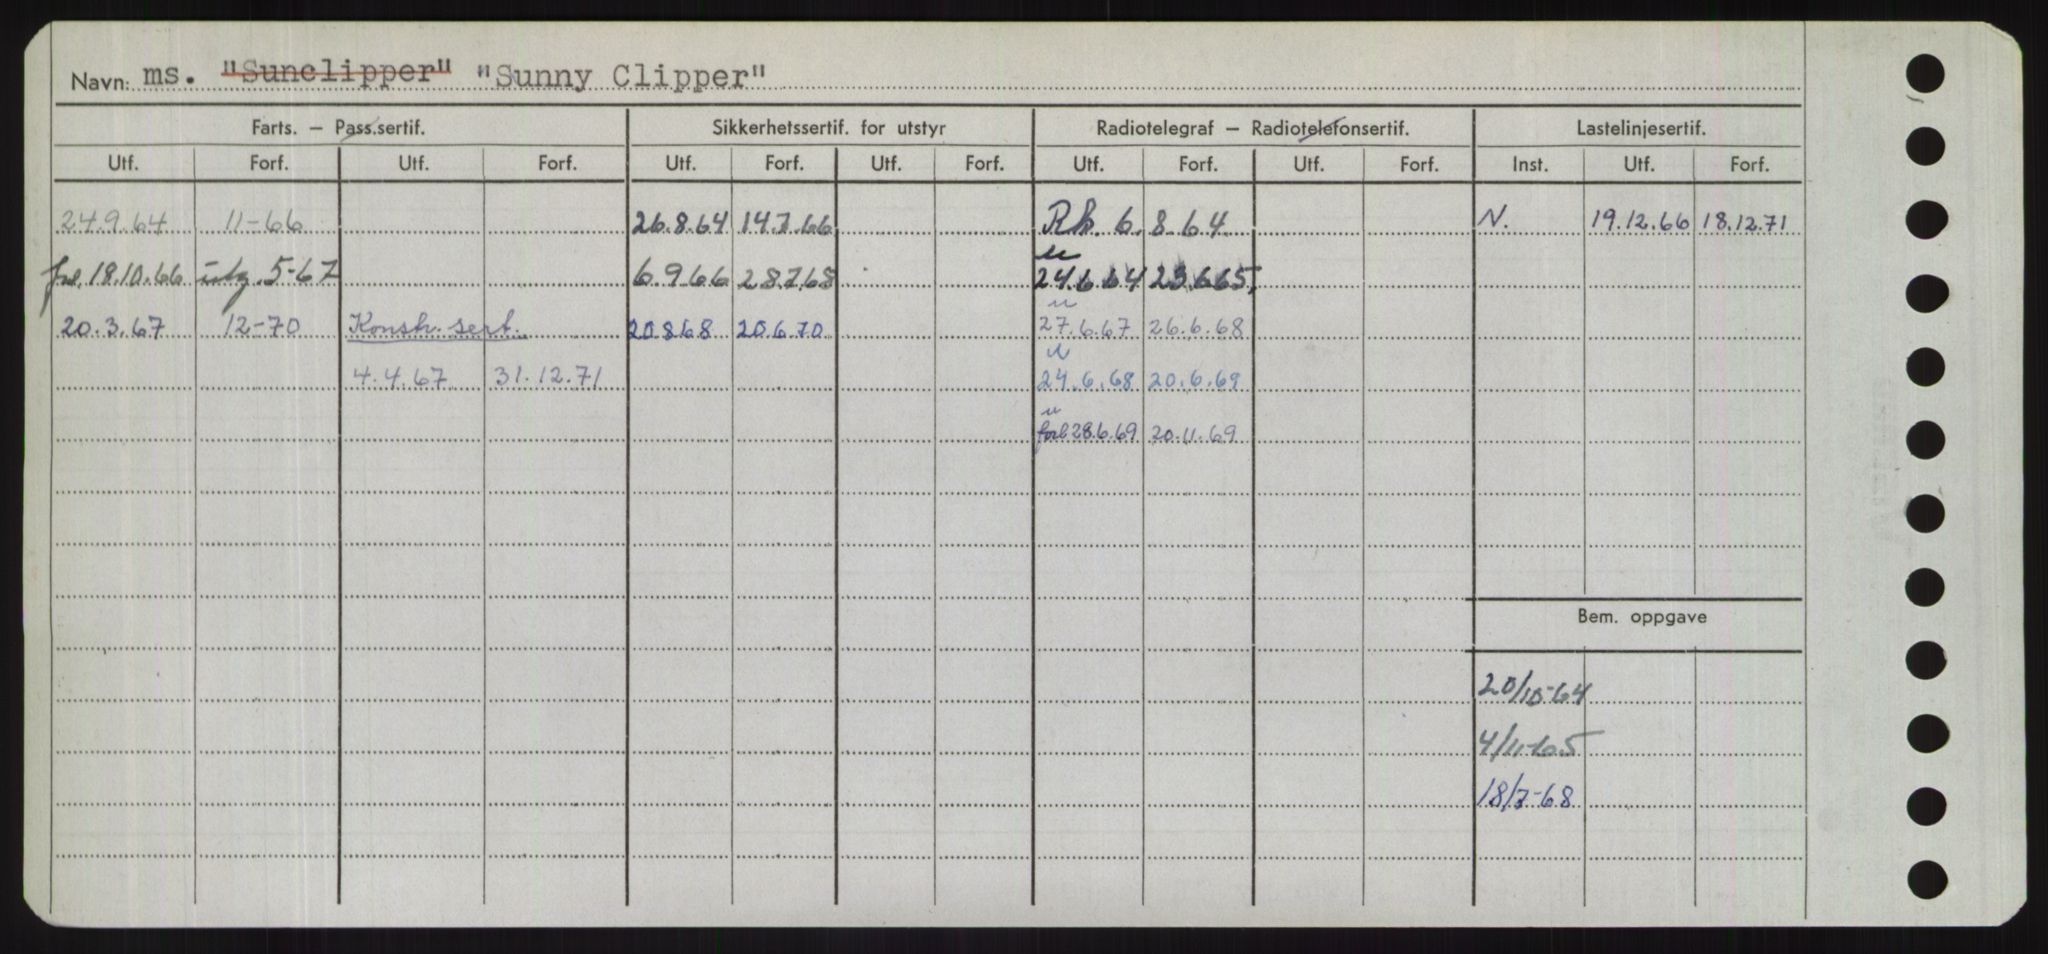 Navn: ms. "Sunclipper" "Sunny Clipper"
Farts. – Pass.sertif. Sikkerhetssertif. for utstyr Radiotelegraf – Radiotelefonsertif. Lastelinjesertif.
Utf. Forf. Utf. Forf. Utf. Forf. Utf. Forf. Utf. Forf. Utf. Forf. Inst. Utf. Forf.
24.9.64 11-66 26.8.64 14.7.66 Rh. 6.8.64 N. 19.12.66 18.12.71
18.10.66 utg. 5-67 6.9.66 28.7.68 24.6.64 23.6.65,
20.3.67 12-70 Konstr. sert. 20.8.68 20.6.70 27.6.67 26.6.68
4.4.67 31.12.71 24.6.68 20.6.69
forl. 28.6.69 20.11.69
Bem. oppgave
20/10-64
4/11-65
18/7-68